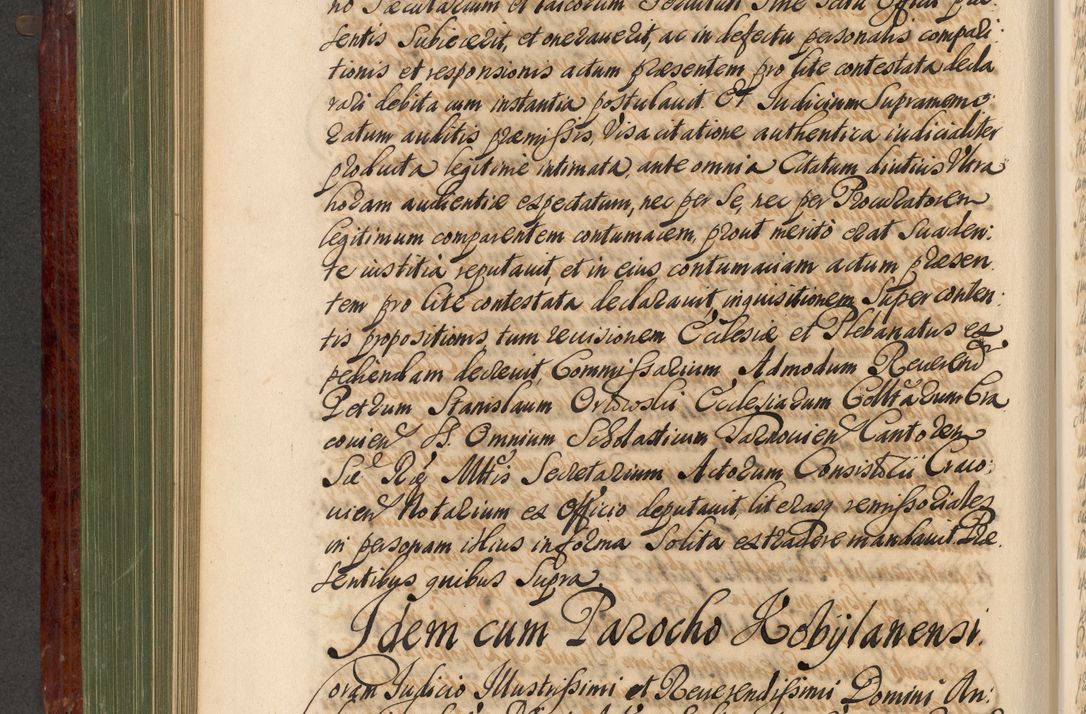 no Sæcularium et laicorum
sentis Subiecerit, et onerauerit, ac in defectu personalis compari:
tionis et responsionis actum præsentem pro lite contestata decla
rari debita cum instantia postulauit. Et Iudicium Supramemo:
ratum auditis præmissis, Visa citatione authentica iudicialiter
producta legitime intimata, ante omnia Citatum diutius Ultra
horam audientiæ expectatum, nec per Se, nec per Procuratorem
legitimum comparentem contumacem, prout merito erat Suaden:
te iustitia reputauit, et in eius contumaciam actum præsen
tem pro lite contestata declarauit, inquisitionem Super conten:
tis propositionis, tum reuisionem Ecclesiæ et Plebanatus ex
pediendam decreuit, Commissarium Admodum Reuerend
Petrum Stanislaum Orłowski Ecclesiarum Colltarum Cra
couien SS. Omnium Scholasticum Tarnouien Cantorem
Sac Reg Mttis Secretarium Actorum Consistorii Craco:
uien Notarium ex officio deputauit, literasq remissoriales
in personam illius in forma Solita extradere mandauit. Præ
sentibus quibus Supra.
Idem cum Parocho Kobÿlanensi.
Coram Iudicio Illustrissimi et Reuerendissimi Domini An: